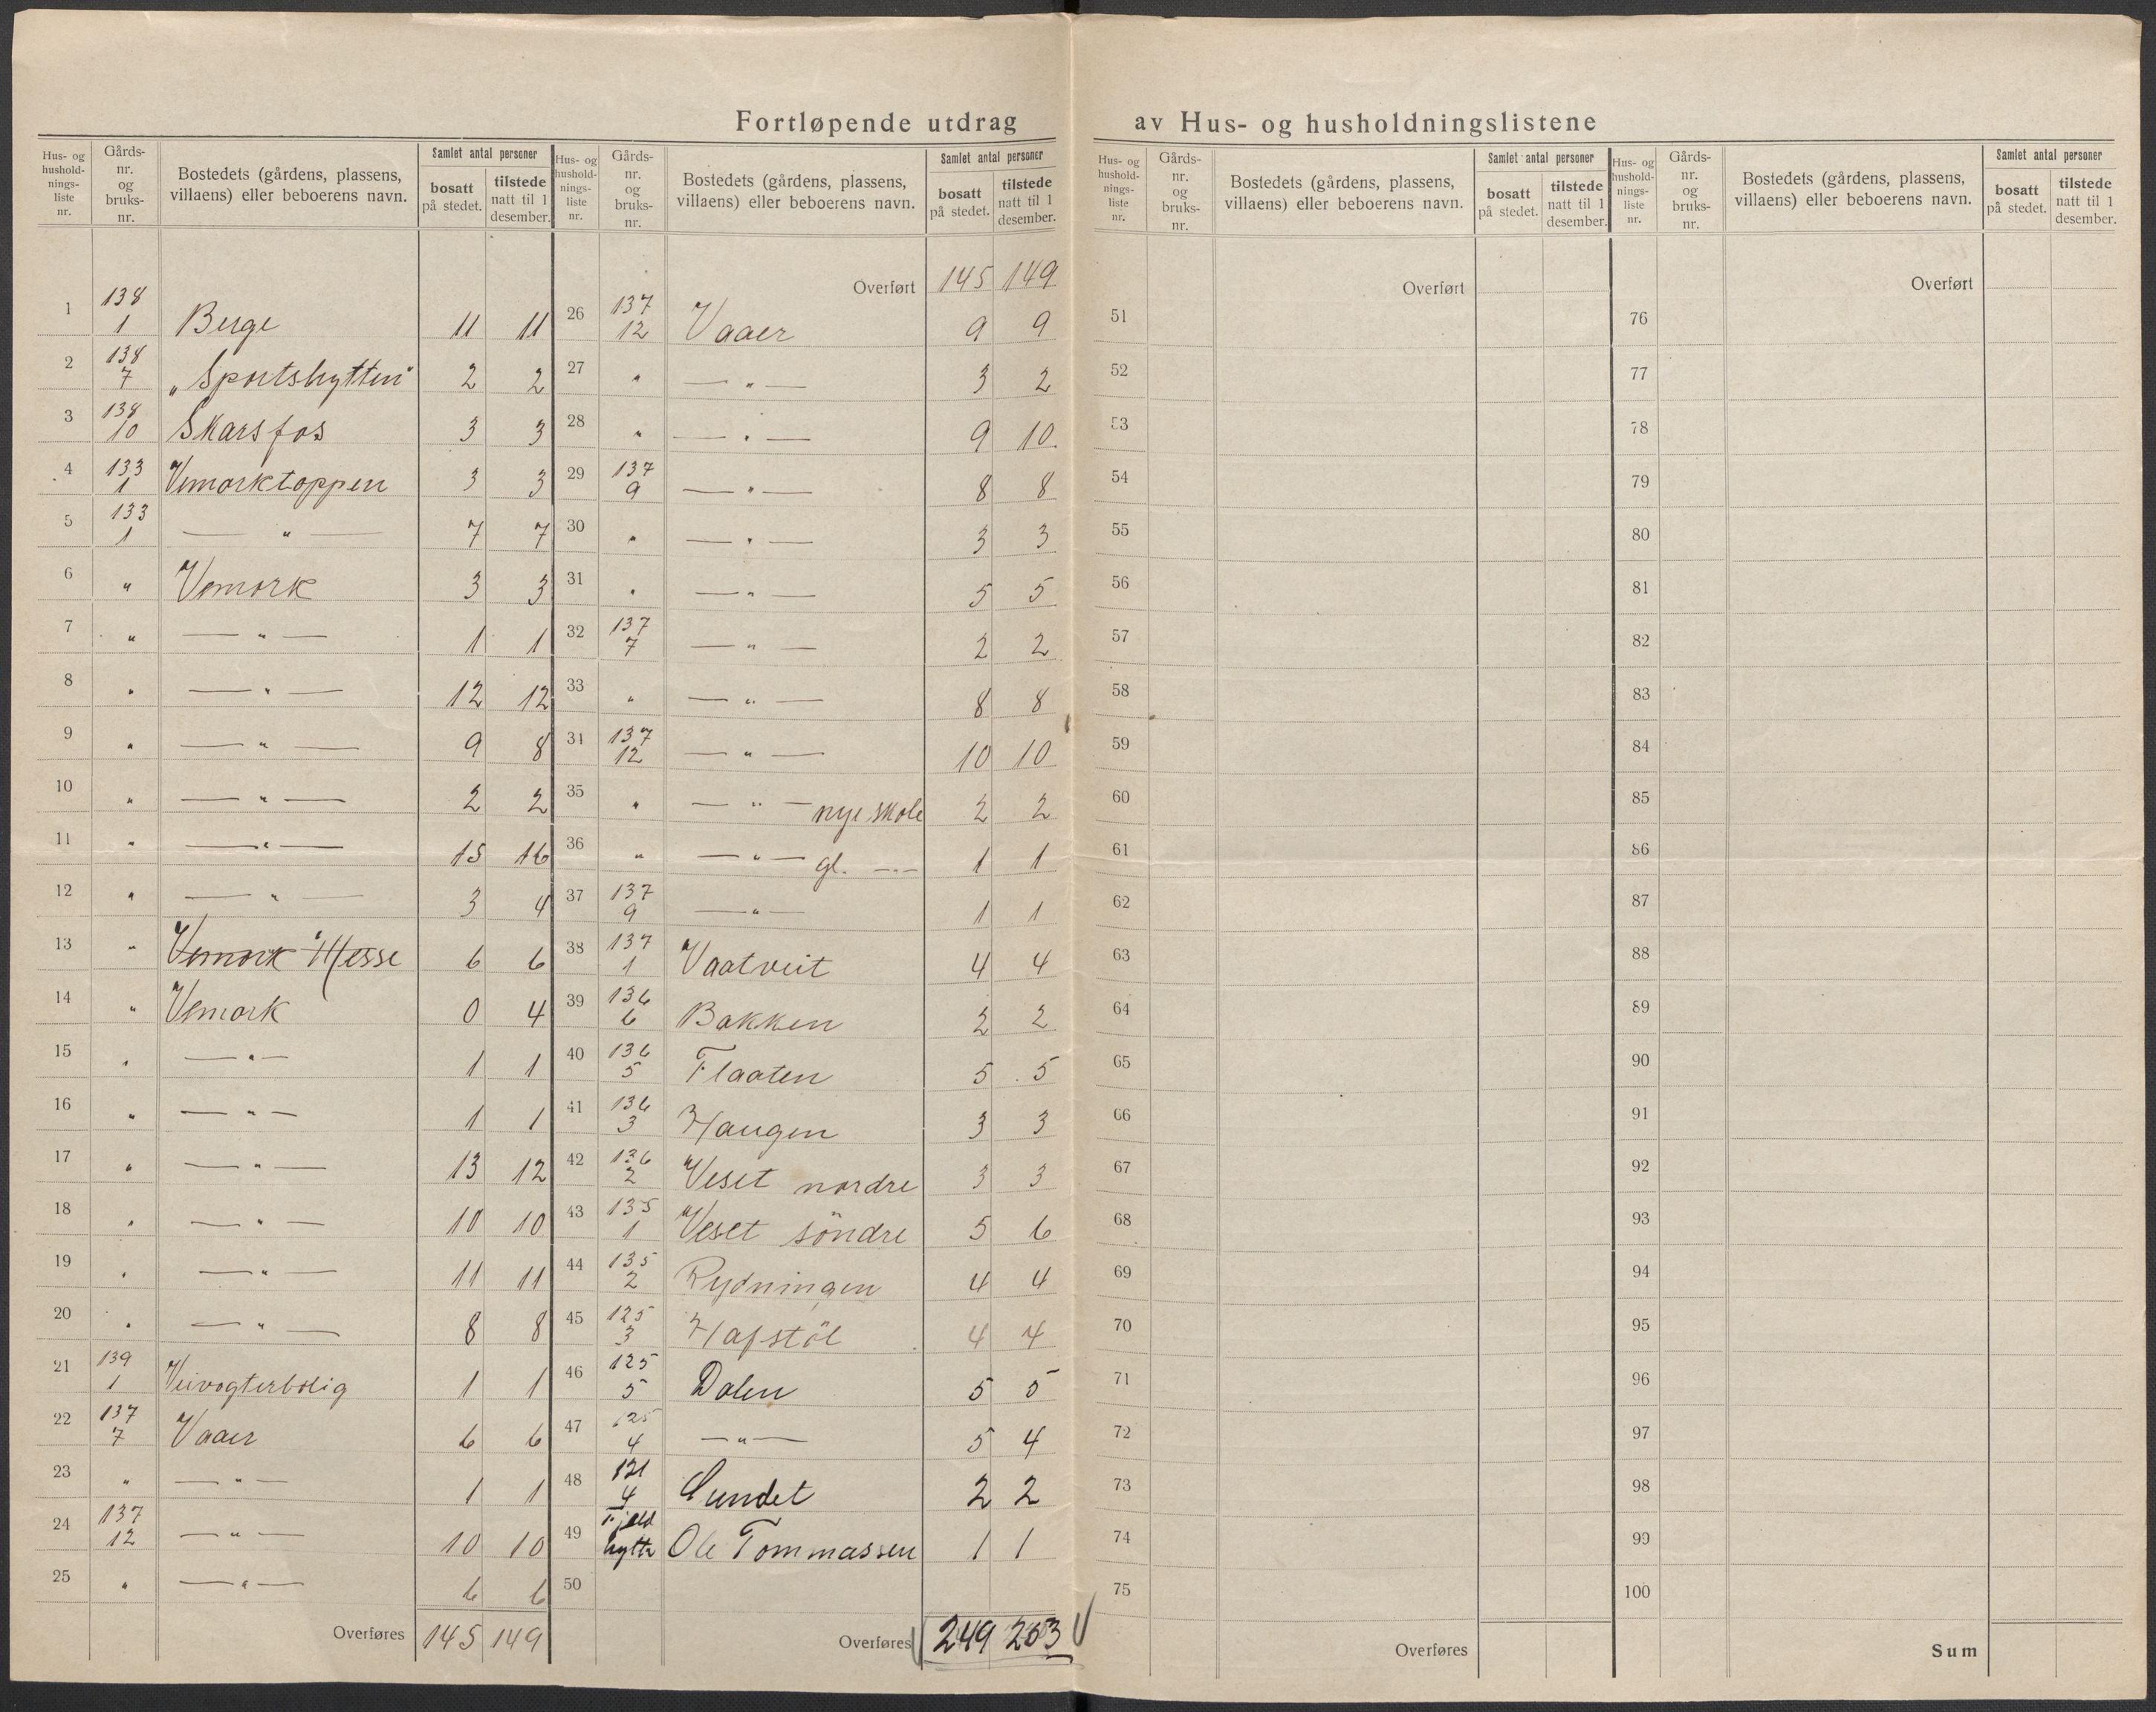 Fortløpende utdrag av Hus- og husholdningslistene
Hus- og hushold-nings-liste nr. | Gårds-nr. og bruks-nr. | Bostedets (gårdens, plassens, villaens) eller beboerens navn. | Samlet antal personer | bosatt på stedet. | tilstede natt til 1 desember.
1 138/1 Berge 11 11
2 138/7 „Sportshytten" 2 2
3 138/10 Skarsfos 3 3
4 133/1 Vemorktoppen 3 3
5 133/1 — " — 7 7
6 " Vemork 3 3
7 " — " — 1 1
8 " — " — 12 12
9 " — " — 9 8
10 " — " — 2 2
11 " — " — 15 16
12 " — " — 3 4
13 " Vemork Messe 6 6
14 " Vemork 0 4
15 " — " — 1 1
16 " — " — 1 1
17 " — " — 13 12
18 " — " — 10 10
19 " — " — 11 11
20 " — " — 8 8
21 139/1 Veivogterbolig 1 1
22 137/7 Vaaer 6 6
23 " — " — 1 1
24 137/12 — " — 10 10
25 " — " — 6 6
Overføres 145 149
Hus- og hushold-nings-liste nr. | Gårds-nr. og bruks-nr. | Bostedets (gårdens, plassens, villaens) eller beboerens navn. | Samlet antal personer | bosatt på stedet. | tilstede natt til 1 desember.
Overført 145 149
26 137/12 Vaaer 9 9
27 " — " — 3 2
28 " — " — 9 10
29 137/9 — " — 8 8
30 " — " — 3 3
31 " — " — 5 5
32 137/7 — " — 2 2
33 " — " — 8 8
34 137/12 — " — 10 10
35 " — " — nye skole 2 2
36 " — " — gl. -"- 1 1
37 137/9 — " — 1 1
38 137/1 Vaatveit 4 4
39 136/6 Bakken 2 2
40 136/5 Flaaten 5 5
41 136/3 Haugen 3 3
42 136/2 Veset nordre 3 3
43 135/1 Veset söndre 5 6
44 135/2 Rydningen 4 4
45 125/3 Hafstöl 4 4
46 125/5 Dalen 5 5
47 125/4 — " — 5 4
48 121/4 Sundet 2 2
49 Fjeld hytte Ole Tommassen 1 1
50
Overføres 249 253
Hus- og hushold-nings-liste nr. | Gårds-nr. og bruks-nr. | Bostedets (gårdens, plassens, villaens) eller beboerens navn. | Samlet antal personer | bosatt på stedet. | tilstede natt til 1 desember.
Overført
51
52
53
54
55
56
57
58
59
60
61
62
63
64
65
66
67
68
69
70
71
72
73
74
75
Overføres
Hus- og hushold-nings-liste nr. | Gårds-nr. og bruks-nr. | Bostedets (gårdens, plassens, villaens) eller beboerens navn. | Samlet antal personer | bosatt på stedet. | tilstede natt til 1 desember.
Overført
76
77
78
79
80
81
82
83
84
85
86
87
88
89
90
91
92
93
94
95
96
97
98
99
100
Sum